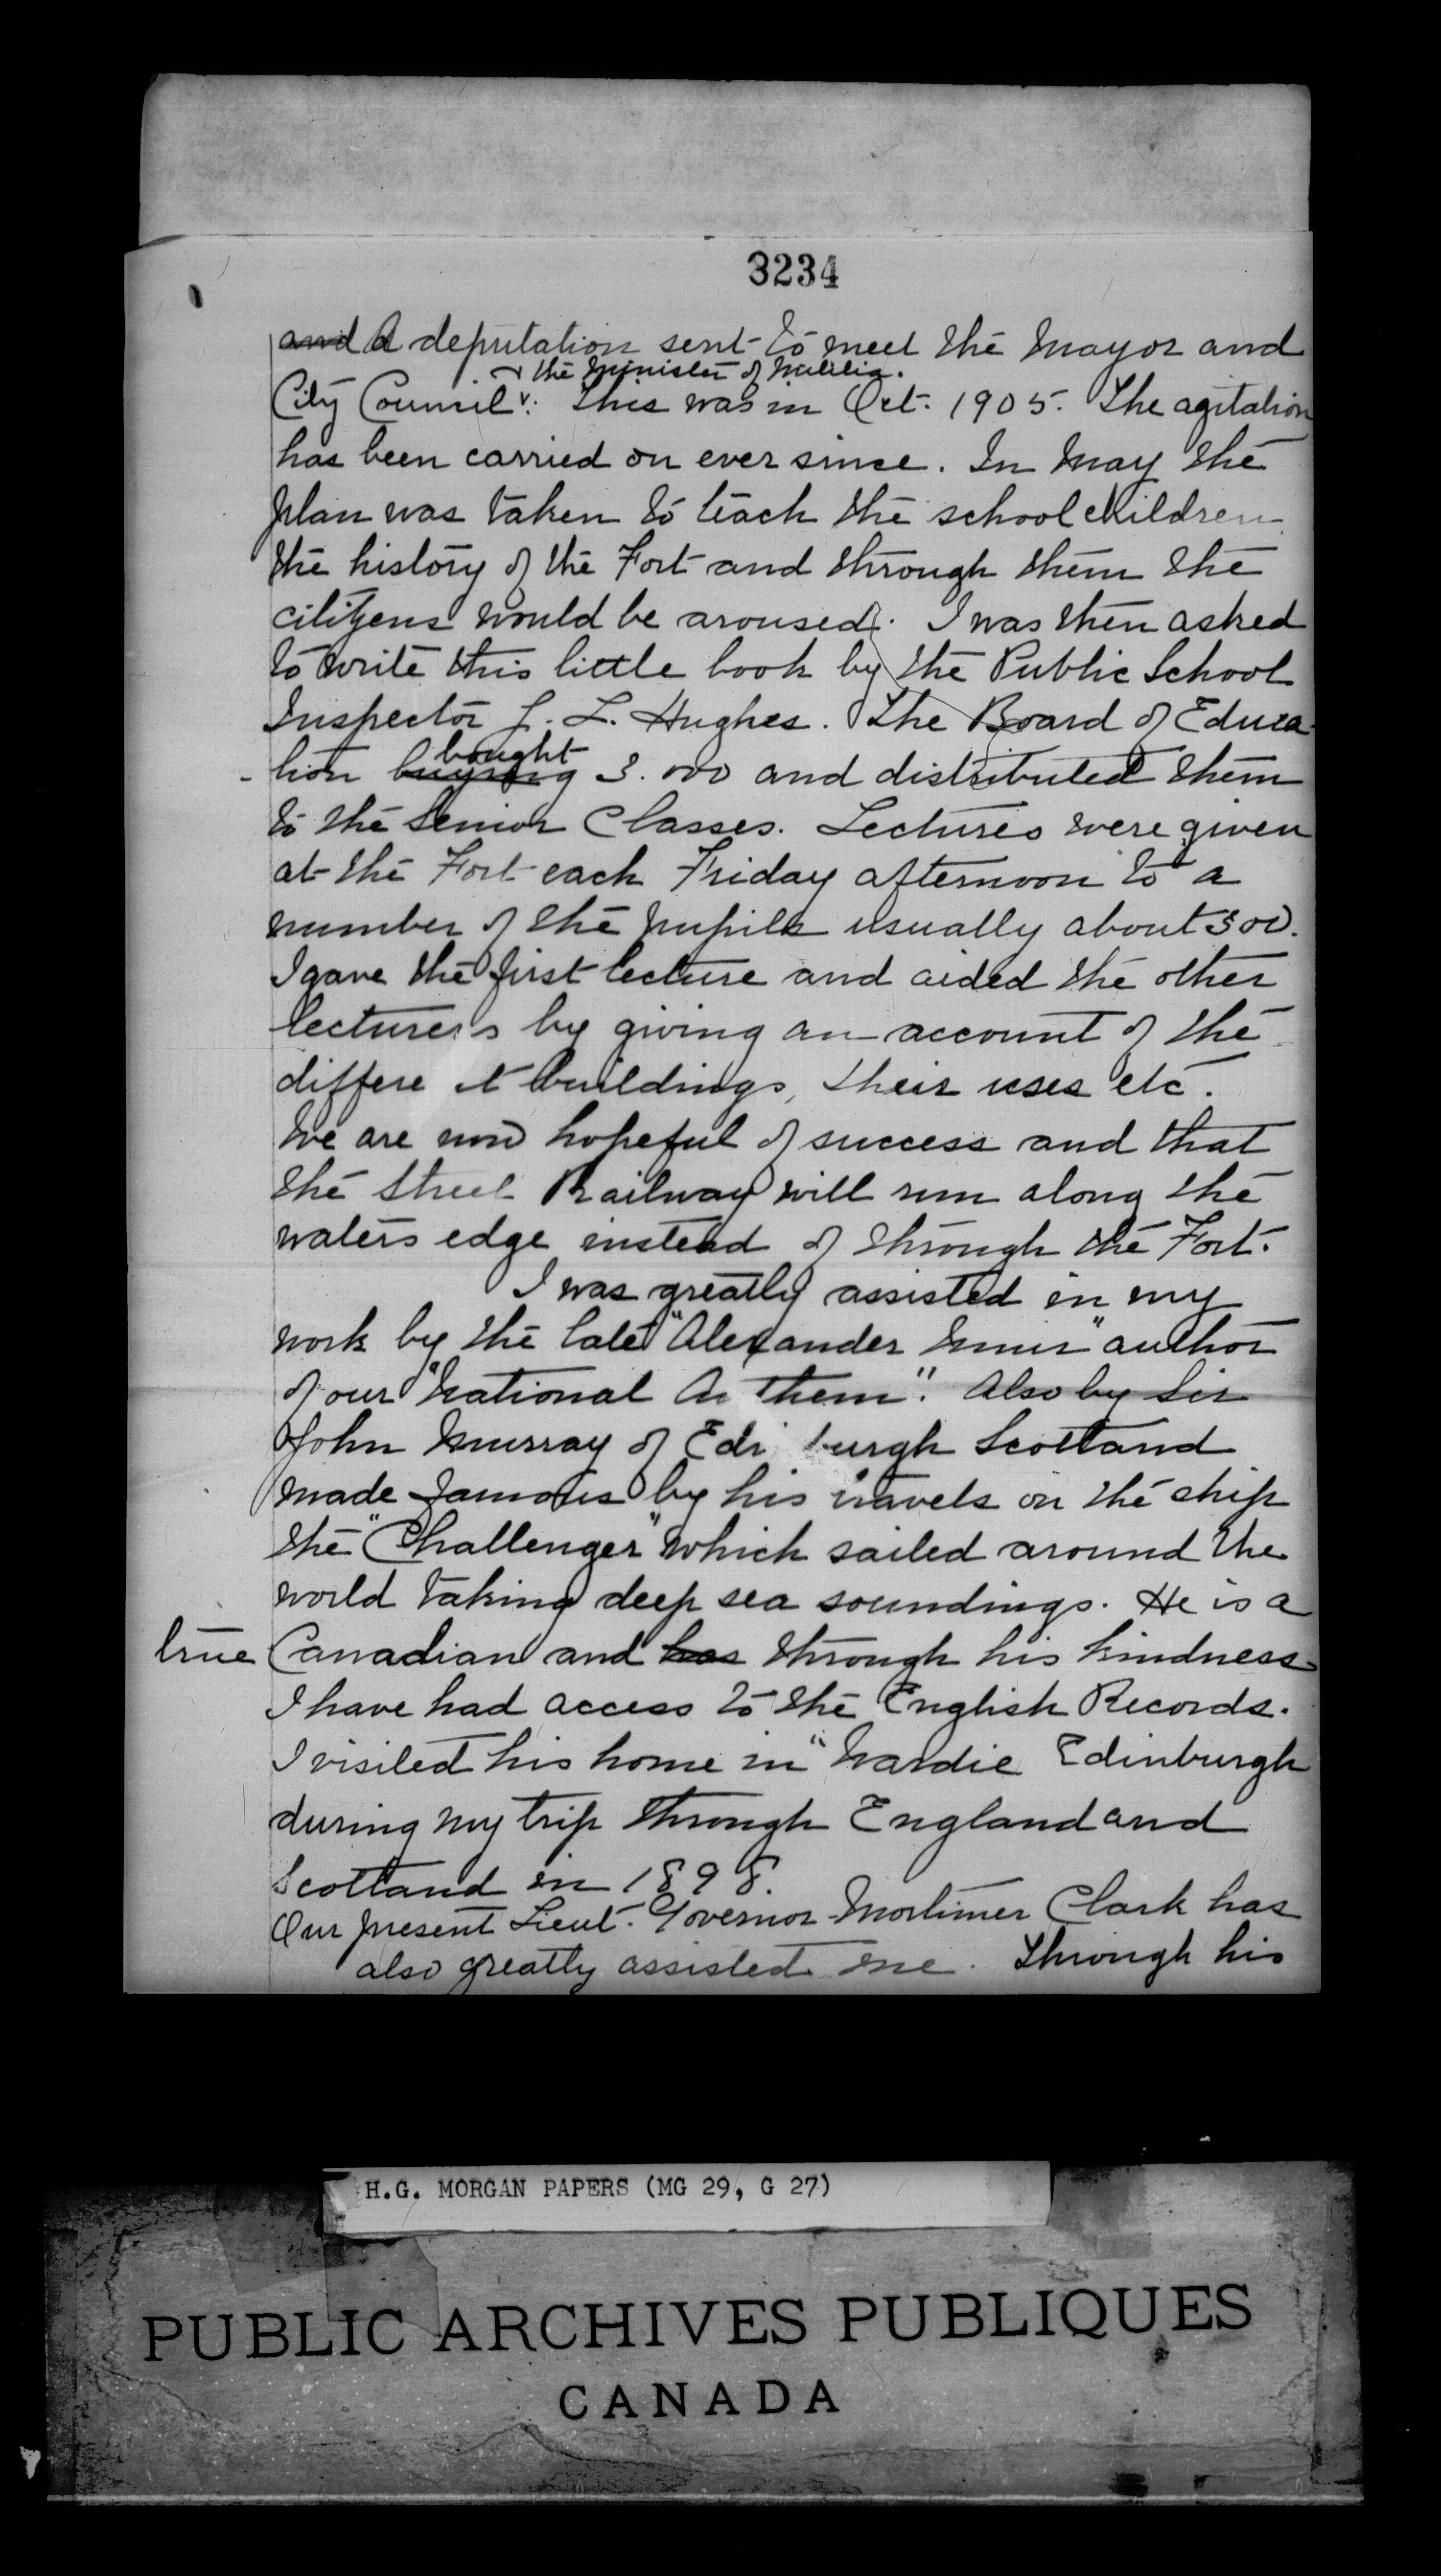 3234
and A deputation sent to meet the Mayor and
& the Minister of Militia.
City Council. This was in Oct. 1905. The agitation
has been carried on ever since. In May the
plan was taken to teach the school children
the history of the Fort and through them the
citizens would be aroused. I was then asked
to write this little book by the Public School
Inspector J. L. Hughes. The Board of Educa-
bought
-tion buying 3.000 and distributed them
to the Senior Classes. Lectures were given
at the Fort each Friday afternoon to a
number of the pupils usually about 300.
I gave the first lecture and aided the other
lecturers by giving an account of the
differe t buildings, their uses etc.
We are now hopeful of success and that
the Street Railway will run along the
waters edge instead of through the Fort.
I was greatly assisted in my
work by the late "Alexander Muir" author
of our "National An them". Also by Sir
John Murray of Edi burgh Scotland
made famous by his travels on the ship
the "Challenger" which sailed around the
world taking deep sea soundings. He is a
true Canadian and has through his kindness
I have had access to the English Records.
I visited his home in "Wardie Edinburgh
during my trip through England and
Scotland in 1898.
Our present Lieut. Governor Mortimer Clark has
also greatly assisted me. Through his
H.G. MORGAN PAPERS (MG 29, G 27)
PUBLIC ARCHIVES PUBLIQUES
CANADA